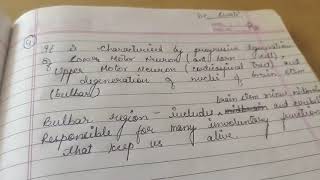 It is characterized by progressive degeneration
of Lower Motor Neuron (ant. horn cell),
Upper Motor Neuron (corticospinal tract) and
degeneration of nuclei of brain stem
(bulbar)
brain stem minus midbrain
Bulbar region - include and
Responsible for many involuntary functions
that keep us alive.